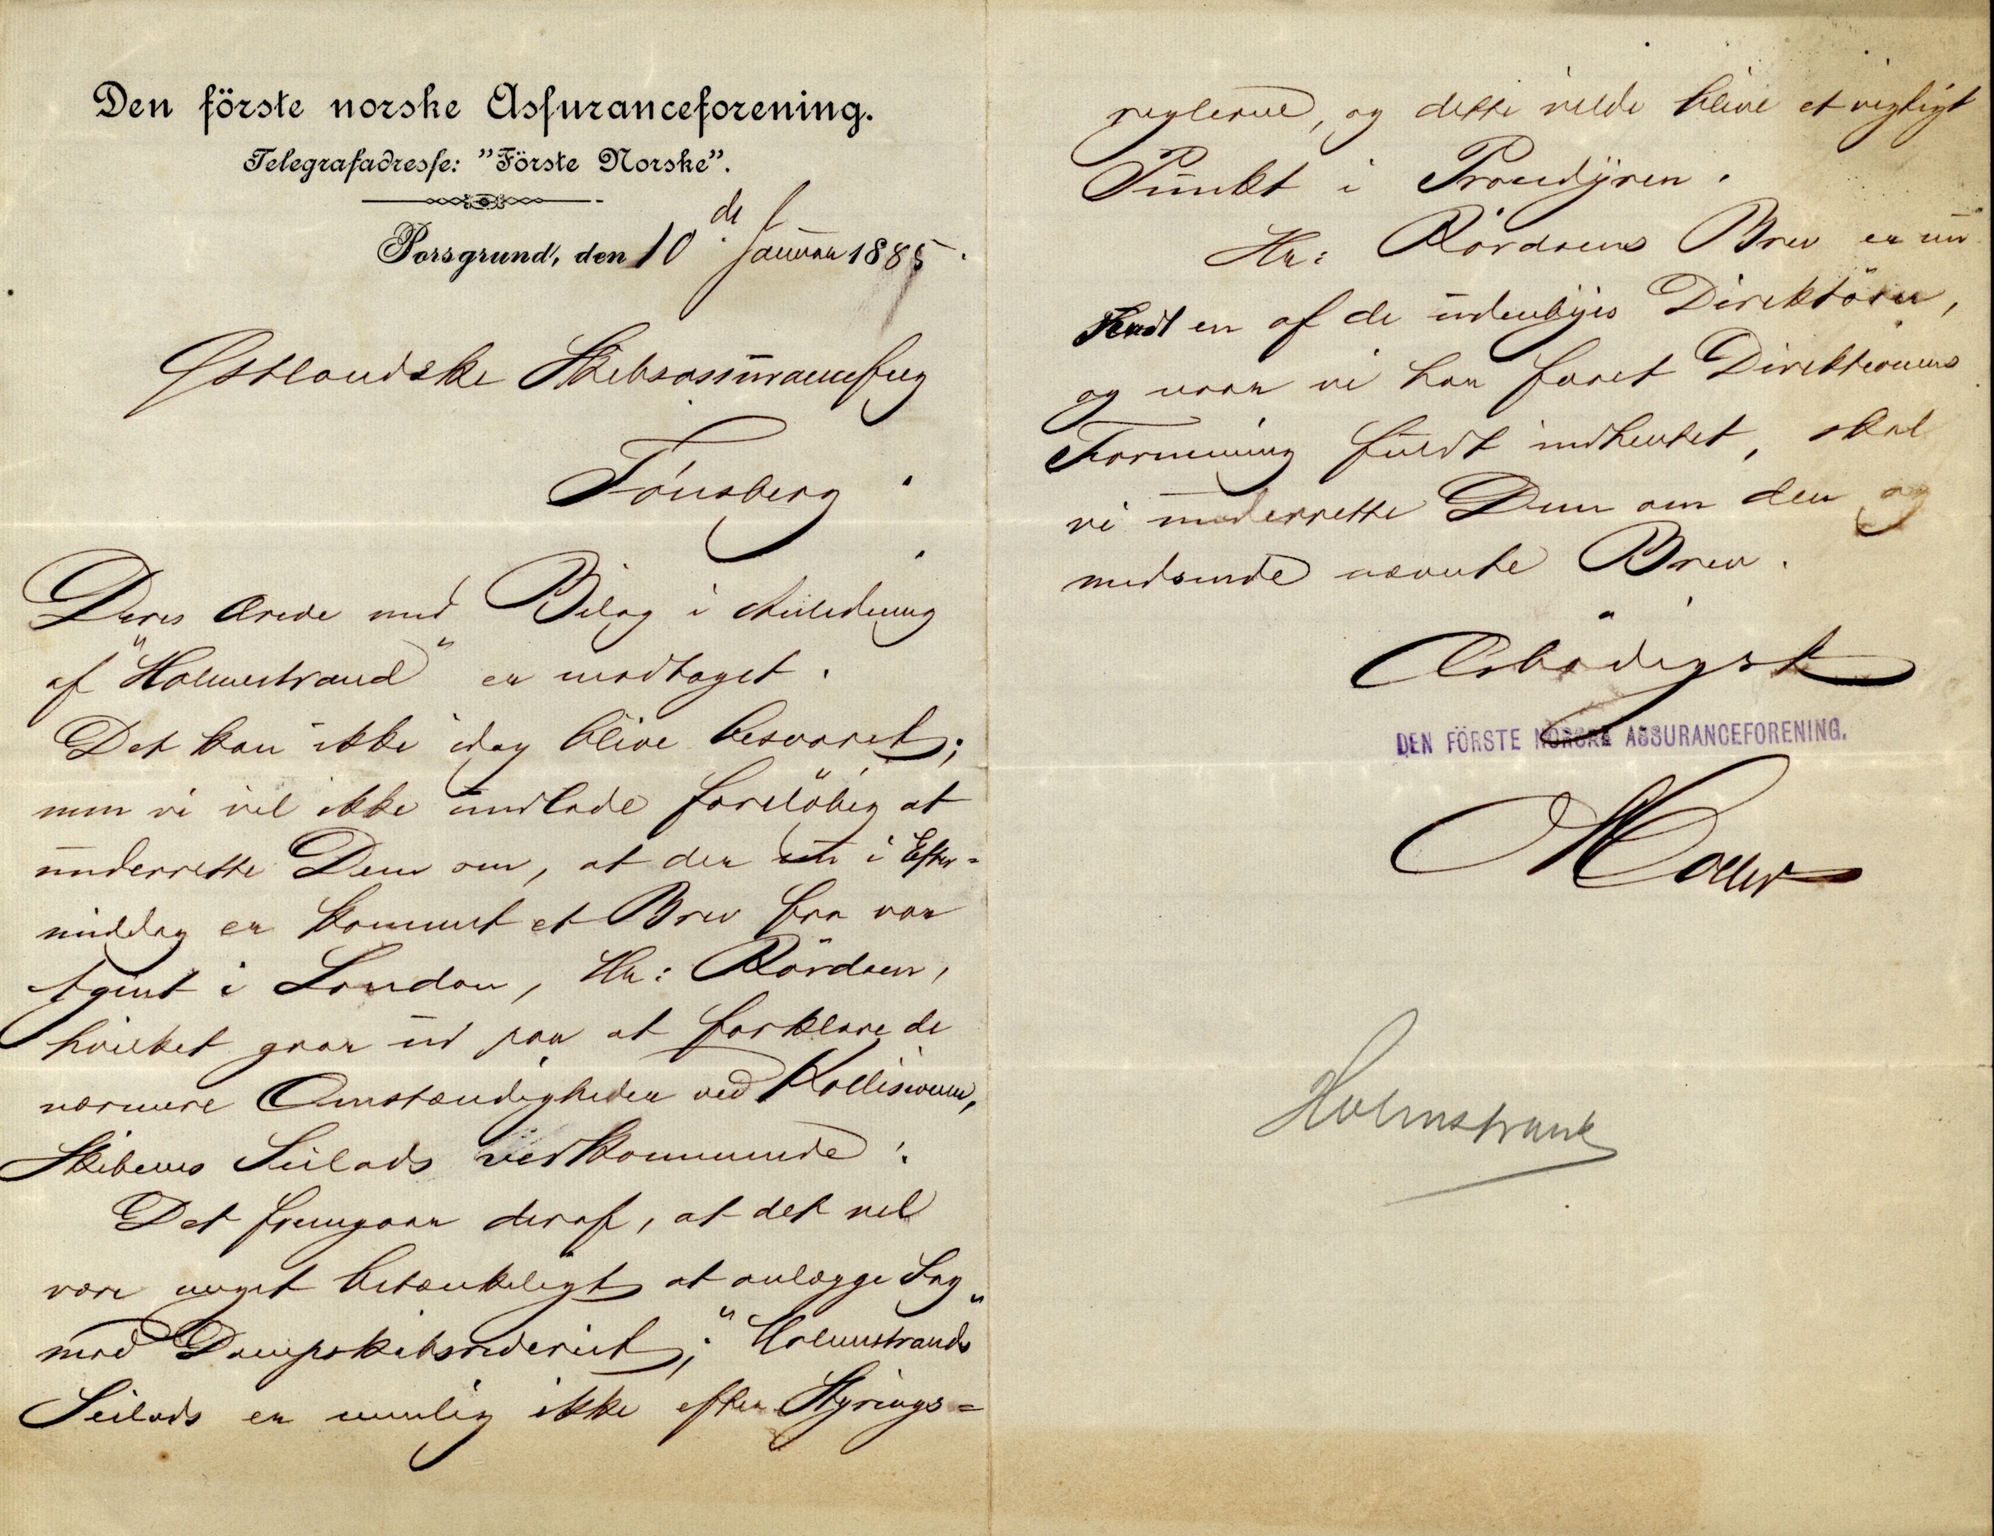 Den förste norske Assuranceforening.
Telegrafadresse: "Förste Norske".
Porsgrund, den 10de Januar 1885.
Østlandske Skibsassuranceforg
Tønsberg.
Deres Ærede med Bilag i Anledning
af "Holmestrand" er modtaget.
Det kan ikke idag blive besvaret;
men vi vil ikke undlade foreløbig at
underrette Dem om, at der nu i Efter-
middag er kommet et Brev fra vor
Agent i London, Hr: Rördam,
hvilket gaar ud paa at forklare de
nærmere Omstændigheder ved Kollisionen,
Skibenes Seilads vedkommende:
Det fremgaar deraf, at det vel
være noget betænkeligt at anlægge Sag
mod Dampskibsrederiet; "Holmestrands"
Seilads er nemlig ikke efter Styrings-
reglerne, og dette vilde blive et vigtigt
Punkt i Procedyren.
Hr: Rördams Brev er nu
sendt en af de udenbyes Direktörer,
og naar vi har faaet Direktionens
Formening fuldt indhentet, skal
vi underrette Dem om den og
medsende nævnte Brev.
Ærbödigst
DEN FÖRSTE NORSKE ASSURANCEFORENING.
Holmstrand